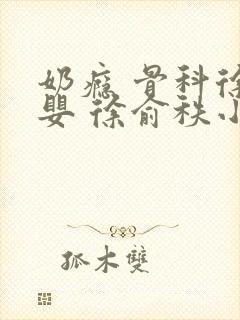 奶瘾 骨科徐
婴 徐俞秩小
孤木雙